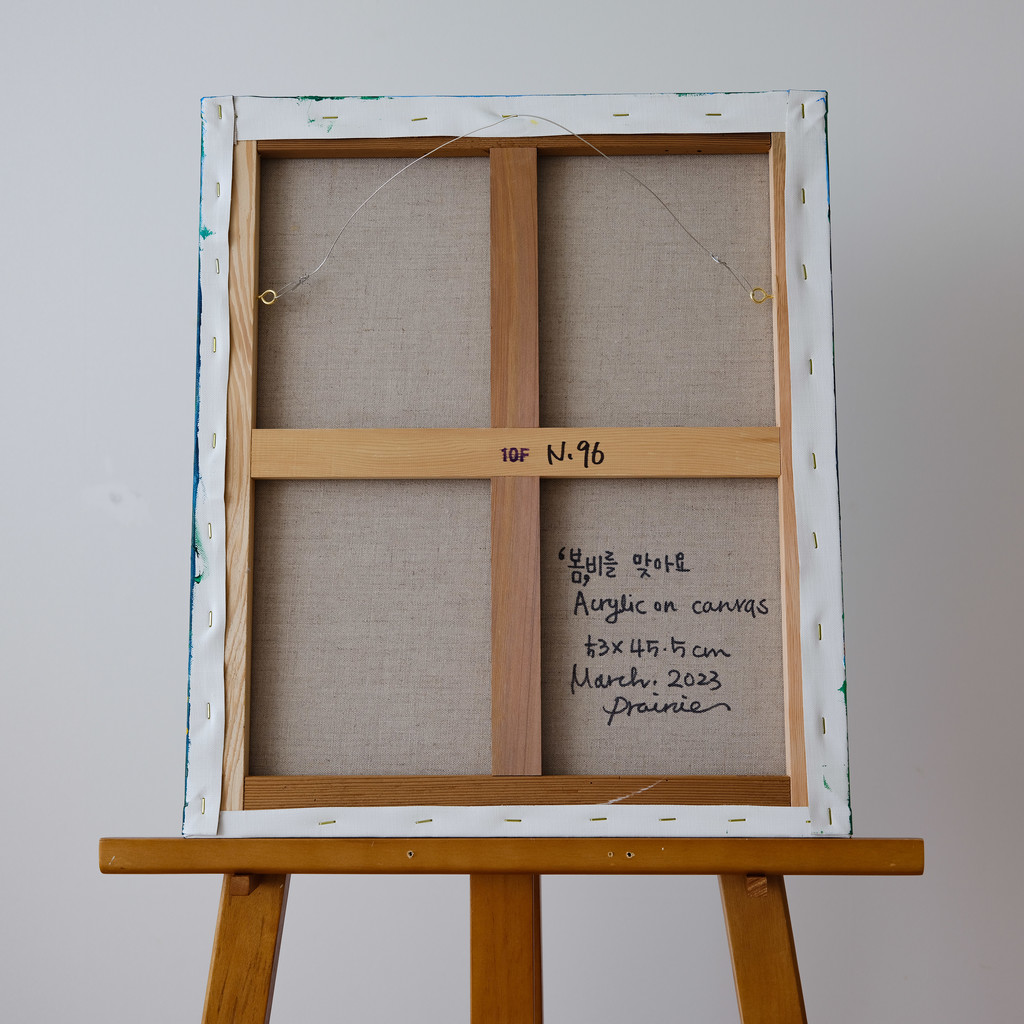 10F N.96
'봄,비를 맞아요
Acrylic on canvas
53x45.5cm
March. 2023
prairie